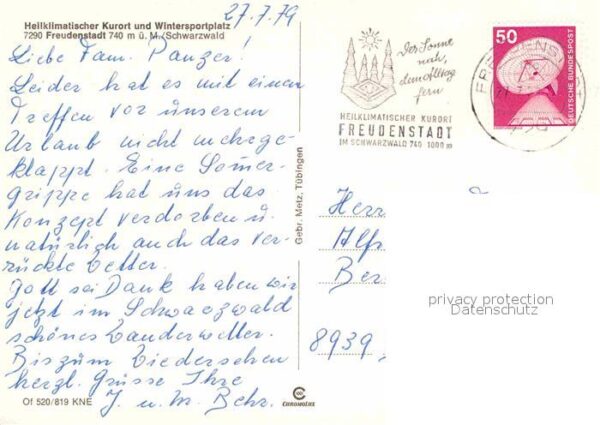 27.7.79
Heilklimatischer Kurort und Wintersportplatz
7290 Freudenstadt 740 m ü. M./Schwarzwald
Liebe Fam. Panzer!
Leider hat es mit einem
Treffen vor unserem
Urlaub nicht mehr ge-
klappt. Eine Somer-
grippe hat uns das
Konzept verdorben u.
natürlich auch das ver-
rückte Wetter.
Gott sei Dank haben wir
jetzt im Schwarzwald
schönes Wanderwetter.
Bis zum Wiedersehen
herzl. Grüsse Ihre
J. u. M. Behr.
Of 520/819 KNE
Gebr. Metz, Tübingen
CHROMOLUX
Der Sonne
nah,
dem Alltag
fern
HEILKLIMATISCHER KURORT
FREUDENSTADT
IM SCHWARZWALD 740 1000 m
50
DEUTSCHE BUNDESPOST
Herr
Alf
Ber
8939
privacy protection
Datenschutz